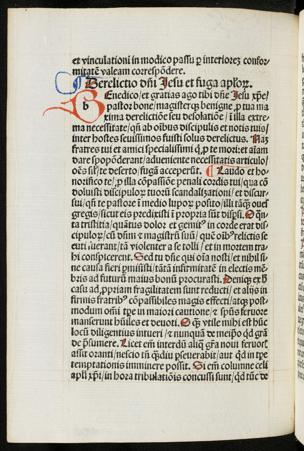 et vinculationi in modico passu ꝑ interiorez confor
mitatē valeam correspōdere.
Derelictio dñi Jesu et fuga apl'oꝝ.
Benedico/et gratias ago tibi dñe Jesu xp̄e/
pastor bone/magisterqꝫ benigne/ꝓ tua ma
xima derelictiōe seu desolatiōe/ī illa extre
ma necessitate/qñ ab oībus discipulis et notis tuis/
inter hostes seuissimos fuisti solus derelictus. Naꝫ
fratres tui et amici specialissimi ꝗ ꝓ te mori: et aīam
dare spoponderant/adueniente necessitatis articulo/
oēs sil'/te deserto/fugā acceperūt. Laudo et ho
norifico te/ꝓ illa cōpassiōe penali cordis tui/qua cō
doluisti discipuloꝝ tuoꝝ scandalizationi/et discur
sui/qñ te pastore ī medio lupoꝝ posito/illi tāꝗ oues
gregis/sicut eis predixisti ī propria sūt disp̄si. O quā
ta tristitia/quātus dolor et gemit9 in corde erat dis
cipuloꝝ/cū dñm et magistrū suū/quē oīb9 relictis se
cuti fuerant/tā violenter a se tolli/et in mortem tra
hi conspicerent. Sed tu dñe qui oīa nosti/et nihil si
ne causa fieri ꝑmisisti/tātā infirmitatē in electis mē
bris ad futurū maius bonū procurasti.
casu ad ꝓpriam fragilitatem sunt reducti/et alijs in
firmis fratrib9 cōpassibiles magis effecti/atqꝫ post
modum omni tꝑe in maiori cautione/et spūs feruore
manserunt hūiles et deuoti. O ꝙ vtile mihi est hūc
locū diligentius intueri/et nunquā de meipō qd grā
de p̄sumere. Licet em̄ interdū aliqꝫ grā noui feruoris
assit oranti/nescio tn̄ qdiu ꝑseuerabit/aut qd in tꝑe
temptationis imminere possit. Si em̄ columne celi
apl'i xp̄i/in hora tribulatiōis concussi sunt/qd tūc de